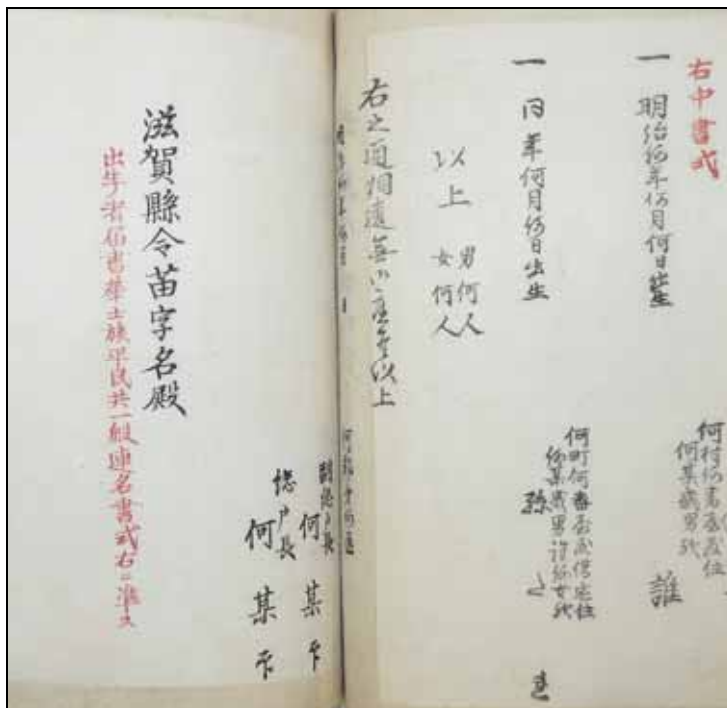 右中書式
一 明治何年何月何日出生
何村何番屋敷住
何某幾男 誰
一 同年何月何日出生
何町何番屋敷借宅住
以上 男何人
女何人
右之通相違無御座候以上
副惣戸長
何某
惣戸長
何某
滋賀縣令苗字名殿
出生者届書華士族平民共一般連名書式右ニ準ス